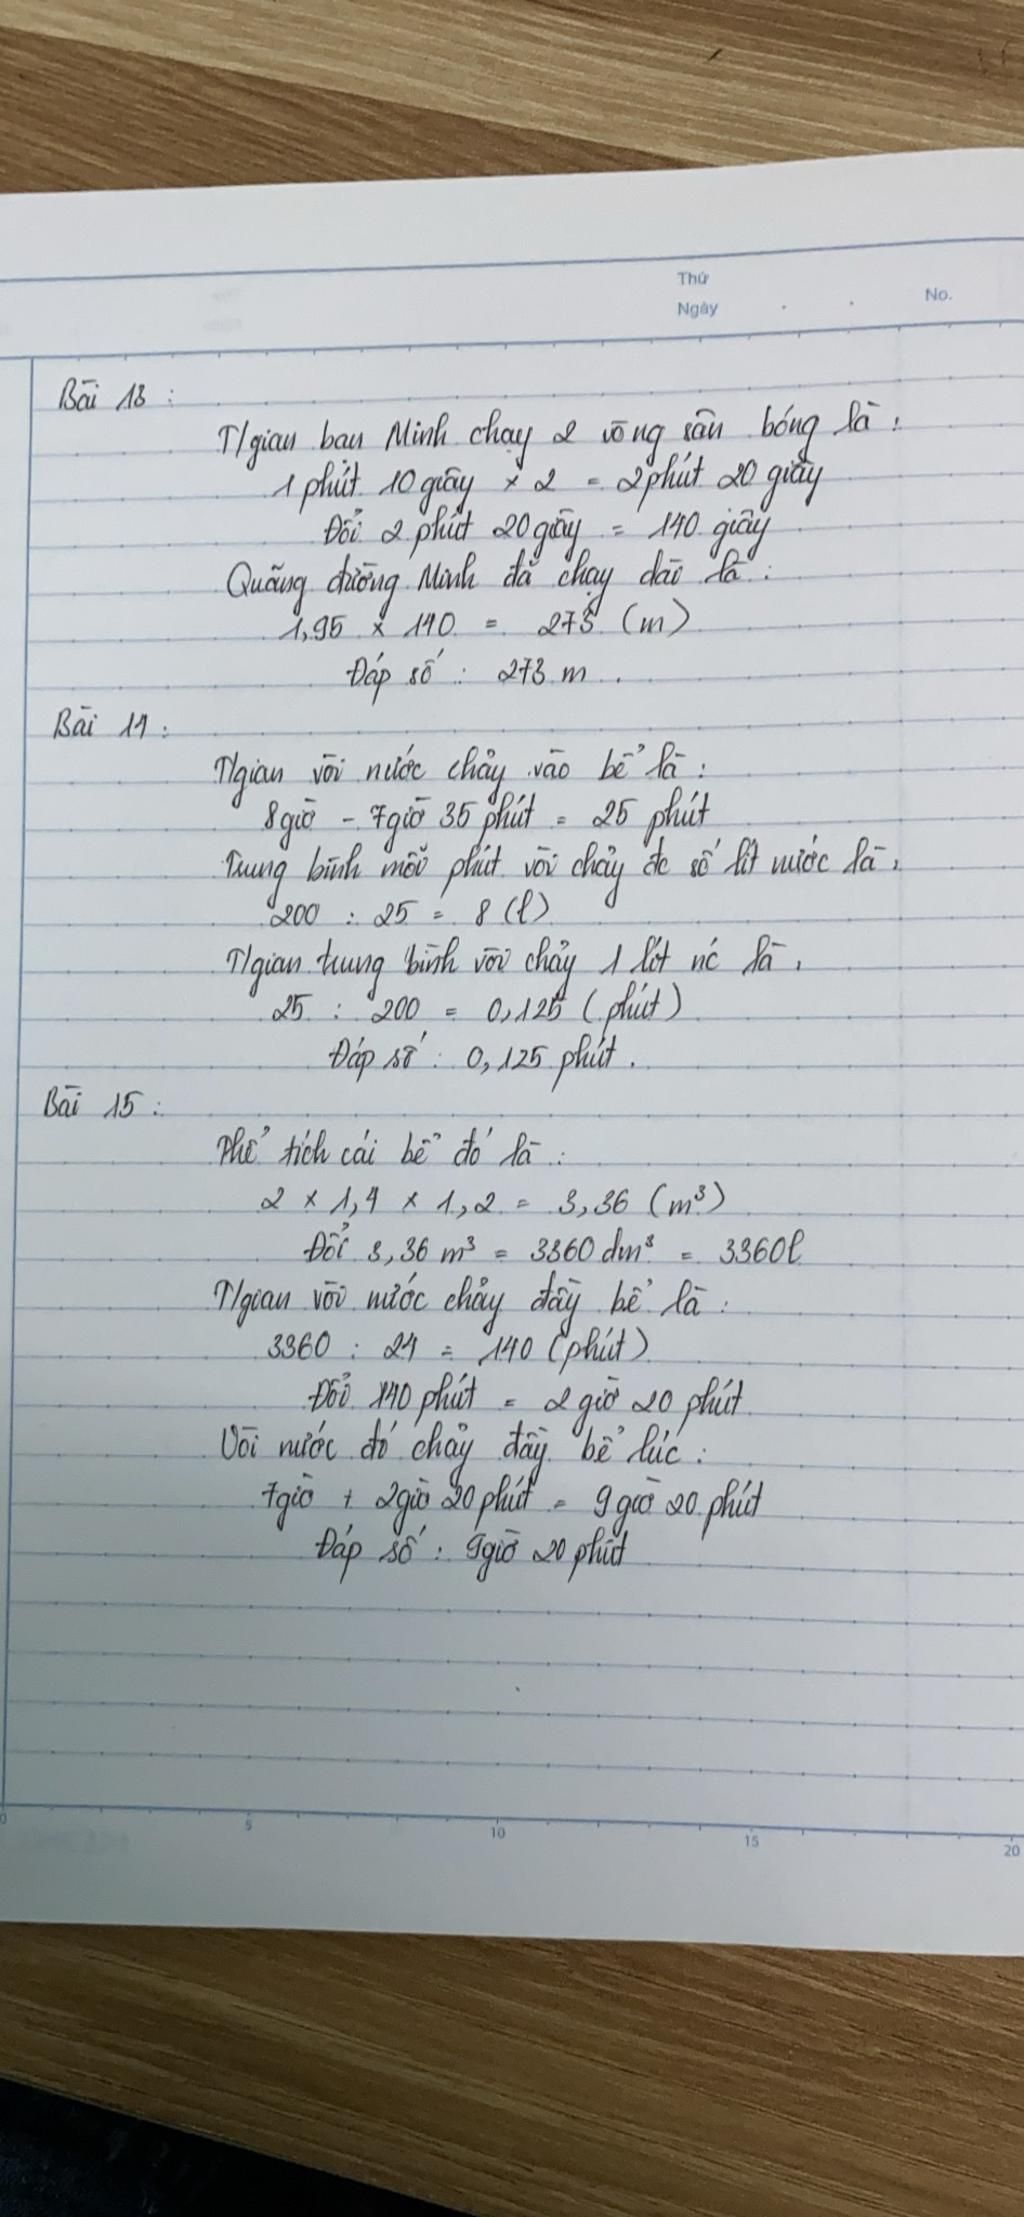 Thứ
Ngày
No.
Bài 13 :
T/gian bạn Minh chạy 2 vòng sân bóng là :
1 phút 10 giây × 2 = 2 phút 20 giây
Đổi 2 phút 20 giây = 140 giây
Quãng đường Minh đã chạy dài là :
1,95 × 140 = 273 (m)
Đáp số : 273 m .
Bài 14 :
T/gian vòi nước chảy vào bể là :
8 giờ - 7 giờ 35 phút = 25 phút
Trung bình mỗi phút vòi chảy đc số lít nước là :
200 : 25 = 8 (l)
T/gian trung bình vòi chảy 1 lít nc là :
25 : 200 = 0,125 (phút)
Đáp số : 0,125 phút .
Bài 15 :
Thể tích cái bể đó là :
2 × 1,4 × 1,2 = 3,36 (m³)
Đổi 3,36 m³ = 3360 dm³ = 3360l
T/gian vòi nước chảy đầy bể là :
3360 : 24 = 140 (phút)
Đổi 140 phút = 2 giờ 20 phút
Vòi nước đó chảy đầy bể lúc :
7 giờ + 2 giờ 20 phút = 9 giờ 20 phút
Đáp số : 9 giờ 20 phút
0 5 10 15 20